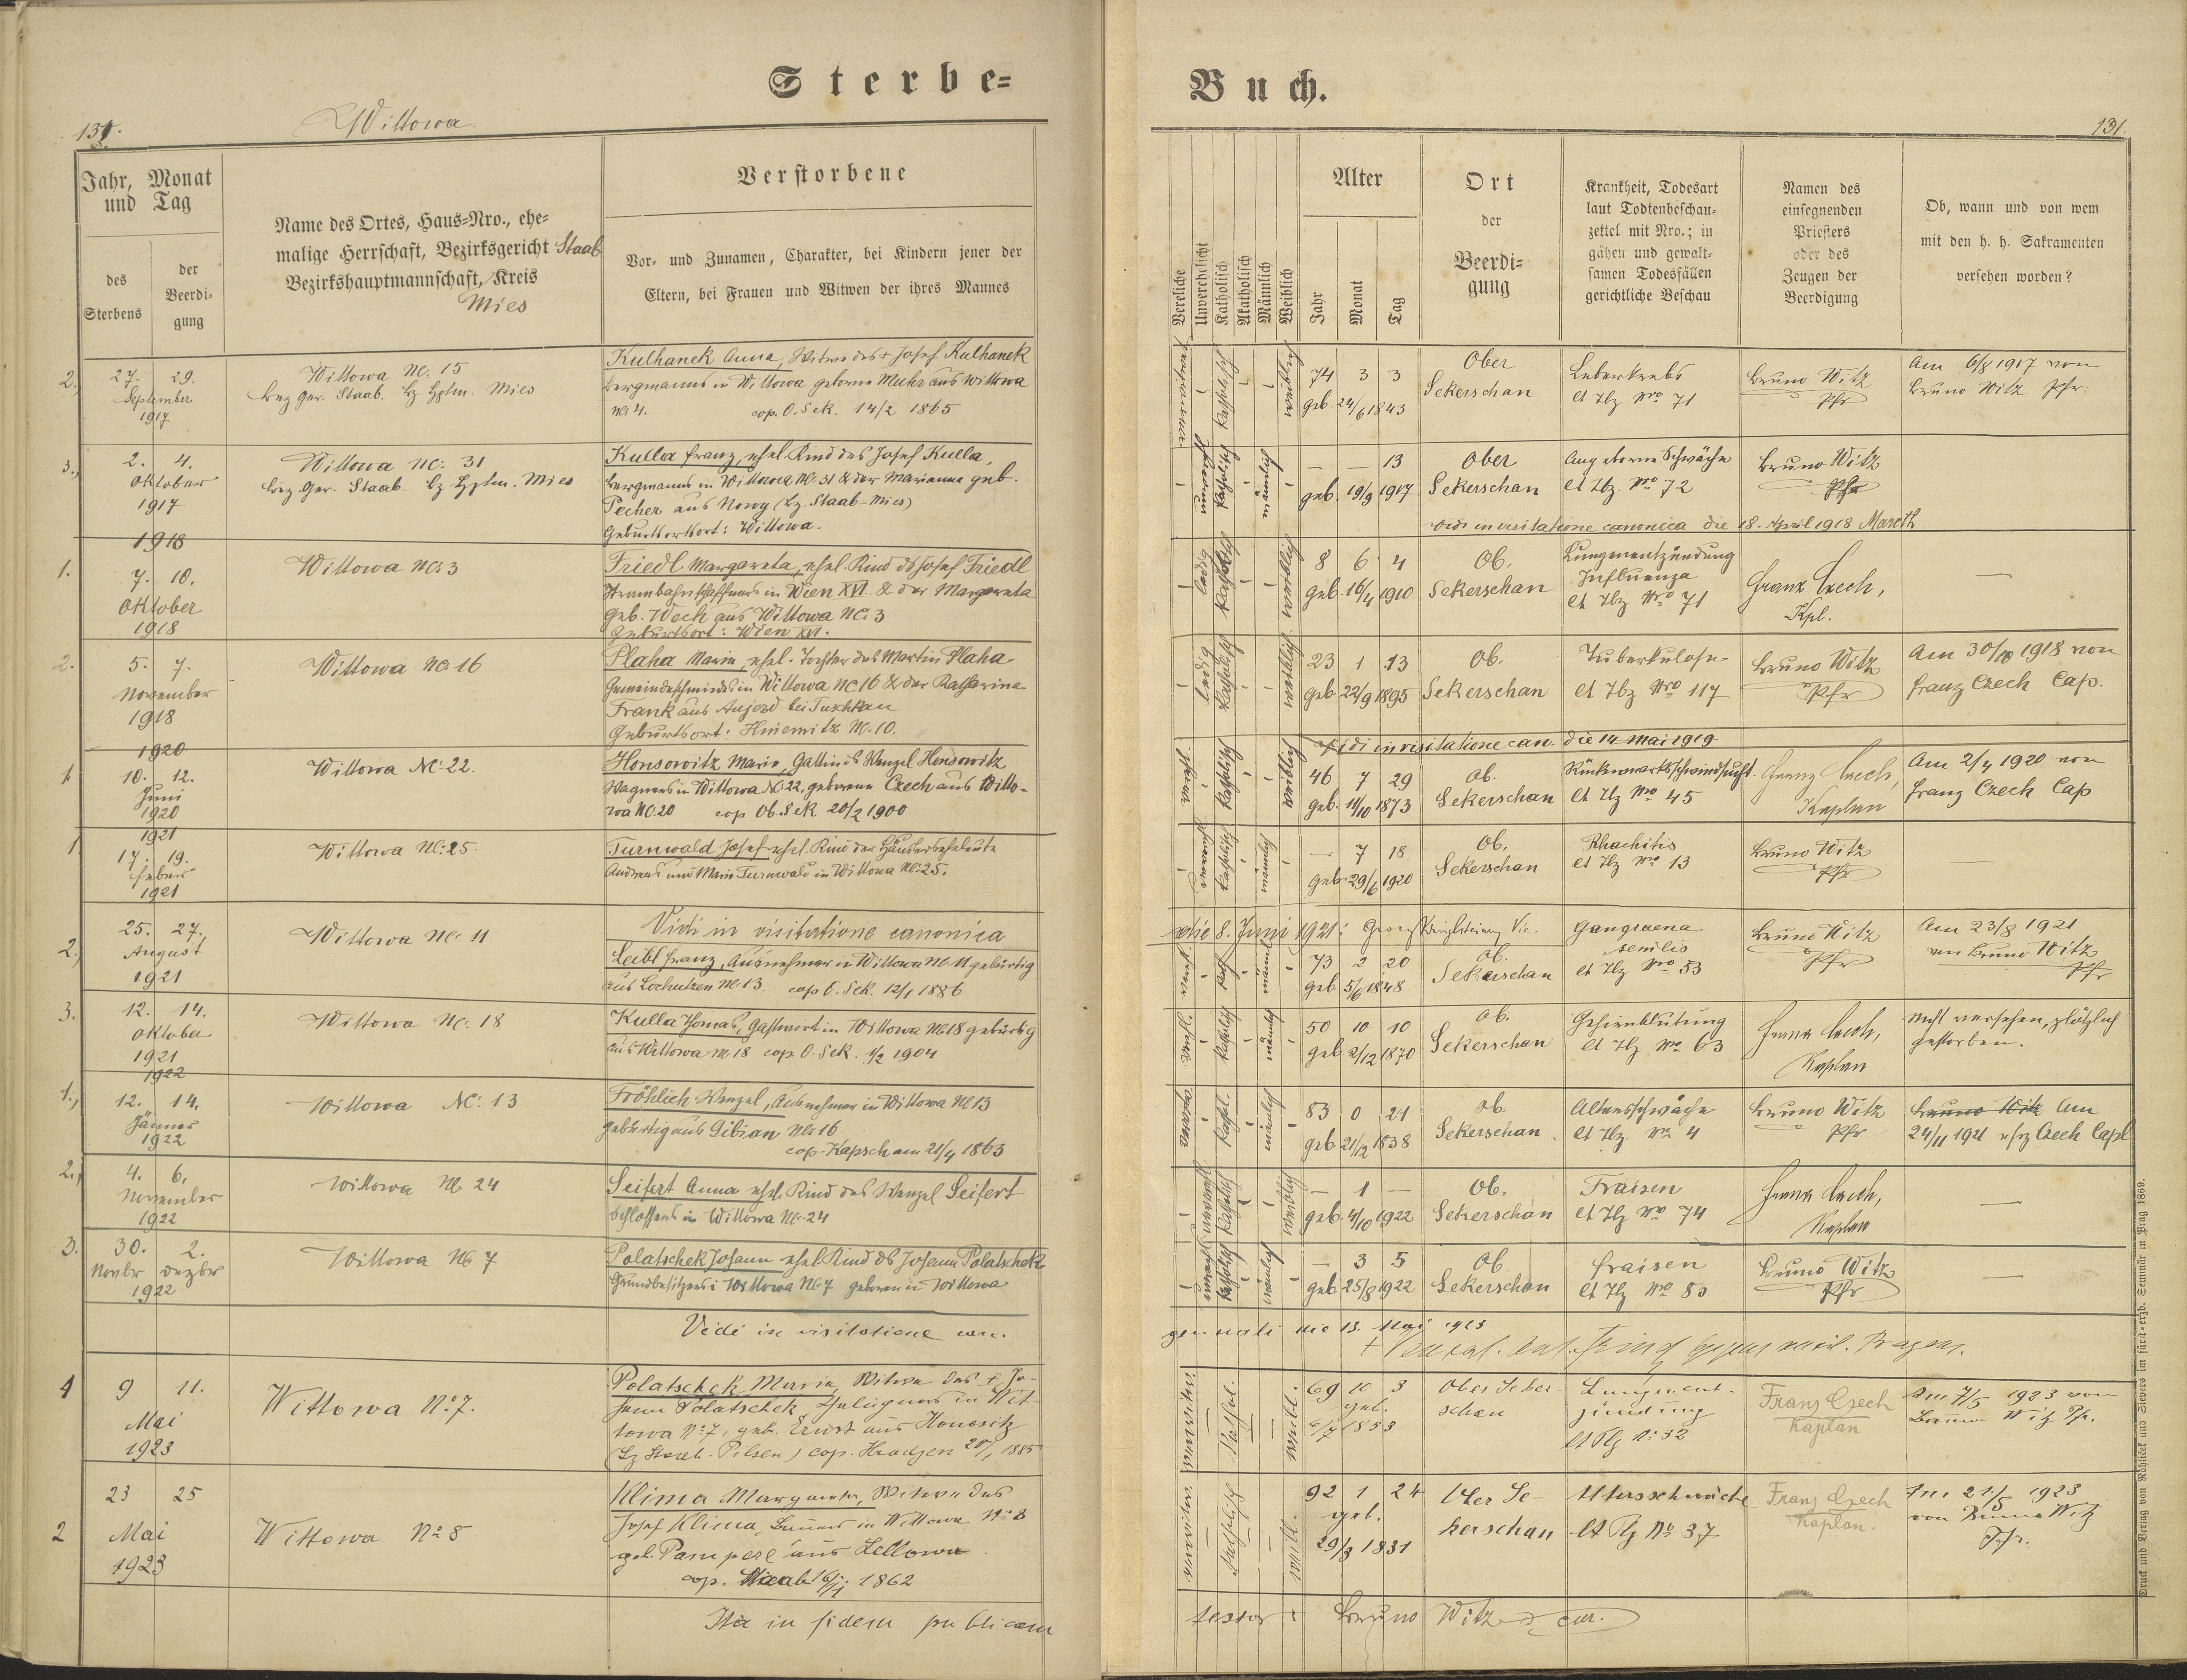 Sterbe=
Buch.
Wittowa
131.
Jahr, Monat und Tag
des Sterbens
der Beerdi=gung
Name des Ortes, Haus=Nro., ehe=
malige Herrschaft, Bezirksgericht Staab
Bezirkshauptmannschaft, Kreis
Mies
Verstorbene
Vor= und Zunamen, Charakter, bei Kindern jener der
Eltern, bei Frauen und Witwen der ihres Mannes
Vereliche
Unverehelicht
Katholisch
Akatholisch
Männlich
Weiblich
Alter
Jahr
Monat
Tag
Ort
der
Beerdi=
gung
Krankheit, Todesart
laut Todtenbeschau=
zettel mit Nro.; in
gähen und gewalt=
samen Todesfällen
gerichtliche Beschau
Namen des
einsegnenden
Priesters
oder des
Zeugen der
Beerdigung
Ob, wann und von wem
mit den h. h. Sakramenten
versehen worden?
131.
2. 27. 29.
September
1917
Wittowa Nc. 15
Bez Ger. Staab. Bz Hptm. Mies
Kulhanek Anna, Witwe des + Josef Kulhanek
Bergmanns in Wittowa geborne Muhr aus Wittowa
Nc 4. cop. O. Sek. 14/2 1865
katholisch weiblich
74 3 3
geb. 24/6 1843
Ober
Sekerschan
Leberkrebs
lt Tbz Nro 71
Bruno Witz
Pfr
Am 6/8 1917 von
Bruno Witz Pfr.
3., 2. 4.
Oktober
1917
Wittowa Nc: 31
Bez Ger. Staab. Bz Hptm. Mies
Kulla Franz, ehel. Kind des Josef Kulla,
Bergmanns in Wittowa Nc. 31 & der Marianna geb.
Pecher aus Nowy (Bz. Staab-Mies)
Geburtsort: Wittowa.
katholisch männlich
— — 13
geb. 19/9 1917
Ober
Sekerschan
Angeborne Schwäche
lt Tbz. Nro 72
Bruno Witz
Pfr
Vidi in visitatione canonica die 18. April 1918 Mareth
1918
1. 7. 10.
Oktober
1918
Wittowa Nc: 3
Friedl Margareta, ehel. Kind ds Josef Friedl
Strambahnschaffners in Wien XVI. & der Margareta
geb. Weck aus Wittowa Nc: 3
Geburtsort: Wien XVI.
ledig katholisch weiblich
8 6 4
geb 16/4 1910
Ob.
Sekerschan
Lungenentzündung
Influenza
lt Tbz Nro 71
Franz Czech,
Kpl.
—
2. 5. 7.
November
1918
Wittowa Nc 16
Plaha Marie, ehel. Tochter des Martin Plaha
Gemeindeschmiedes in Wittowa Nc 16 & der Katharina
Frank aus Aujezd bei Tuschkau
Geburtsort: Hniemitz Nc. 10.
ledig katholisch weiblich
23 1 13
geb. 22/9 1895
Ob.
Sekerschan
Tuberkulose
lt Tbz Nro 117
Bruno Witz
Pfr
Am 30/10 1918 von
Franz Czech Cap.
1920
Vidi in visitatione can. die 14 Mai 1919
1 10. 12.
Juni
1920
Wittowa Nc: 22.
Honsowitz Marie, Gattin ds Wenzel Honsowitz
Wagners in Wittowa Nc 22, geborene Czech aus Witto-
wa Nc 20 cop Ob. Sek 20/2 1900
katholisch weiblich
46 7 29
geb. 11/10 1873
Ob.
Sekerschan
Rückenmarksschwindsucht
lt Tbz Nro 45
Franz Czech,
Kaplan
Am 2/4 1920 von
Franz Czech Cap
1921
1 17. 19.
Feber
1921
Wittowa Nc: 25.
Turnwald Josef ehel. Kind der Häuslerseheleute
Andreas und Marie Turnwald in Wittowa Nc: 25.
katholisch männlich
— 7 18
geb 29/6 1920
Ob.
Sekerschan
Rhachitis
lt Tbz Nro 13
Bruno Witz
Pfr
—
Vidi in visitatione canonica
die 8. Juni 1921:
2., 25. 27.
August
1921
Wittowa Nc. 11
Leibl Franz, Ausnehmer in Wittowa Nc. 11 gebürtig
aus Lochutzen Nc. 13. cop O. Sek. 12/1 1886
73 2 20
geb 5/6 1848
Ob.
Sekerschan
Gangraena
senilis
lt Tbz Nro 53
Bruno Witz
Pfr
Am 23/8 1921
von Bruno Witz
Pfr
3. 12. 14.
Oktober
1921
Wittowa Nc. 18
Kulla Thomas, Gastwirt in Wittowa Nc 18 gebürtig
aus Wittowa Nc 18 cop O. Sek. 1/2 1904
katholisch männlich
50 10 10
geb 2/12 1870
Ob.
Sekerschan
Gehirnblutung
lt Tbz Nro 63
Franz Czech,
Kaplan
nicht versehen, plötzlich
gestorben.
1922
1., 12. 14.
Jänner
1922
Wittowa Nc: 13
Fröhlich Wenzel, Ausnehmer in Wittowa Nc 13
gebürtig aus Gibian Nc 16
cop. Kapsch am 21/4 1863
kathol. männlich
83 0 21
geb 21/12 1838
Ob.
Sekerschan
Altersschwäche
lt Tbz. Nro 4
Bruno Witz
Pfr
Bruno Witz Am
24/11 1921 Czech Capl
2., 4. 6.
November
1922
Wittowa Nc. 24
Seifert Anna ehel. Kind des Wenzel Seifert
Schlossers in Wittowa Nc. 24
katholisch weiblich
— 1 —
geb. 4/10 1922
Ob.
Sekerschan
Fraisen
lt Tbz Nro 74
Franz Czech,
Kaplan
—
3. 30. 2.
Novbr Dezbr
1922
Wittowa Nc 7
Polatschek Johann ehel. Kind ds Johann Polatschek
Grundbesitzers i Wittowa Nc 7 geboren in Wittowa
katholisch männlich
— 3 5
geb 25/8 1922
Ob
Sekerschan
Fraisen
lt Tbz Nro 80
Bruno Witz
Pfr
—
Vidi in visitatione can.
generali die 13. Mai 1923
1 9 11.
Mai
1923
Wittowa No 7.
Polatschek Maria, Witwe des + Jo-
hann Polatschek, Chalupners in Wit-
towa No 7, geb. Ernst aus Honositz
(Bz Staab-Pilsen) cop. Hradzen 20/1 1885
weibl.
69 10 3
geb.
4/7 1853
Ober Seker-
schan
Lungenent-
zündung
lt Tbz No 32
Franz Czech
Kaplan
Am 7/5 1923 von
Bruno Witz Pfr.
2 23 25
Mai
1923
Wittowa No 8
Klima Margareta, Witwe des
Josef Klima, Bauers in Wittowa No 8
geb. Pamperl aus Lellowa
cop. Staab 16/11 1862
katholisch weibl.
92 1 24
geb.
29/3 1831
Ober Se-
kerschan
Altersschwäche
lt Tbz No 37
Franz Czech
Kaplan.
Am 21/5 1923
von Bruno Witz
Pfr.
Ita in fidem publicam
testor: Bruno Witz cur.
Druck und Verlag von Rohliček und Sievers im fürst=erzb. Seminär in Prag 1869.